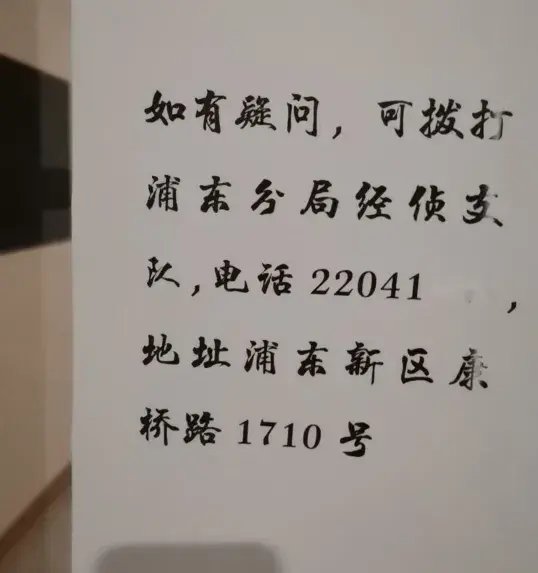 如有疑问，可拨打
浦东分局经侦支
队,电话22041 ,
地址浦东新区康
桥路1710号